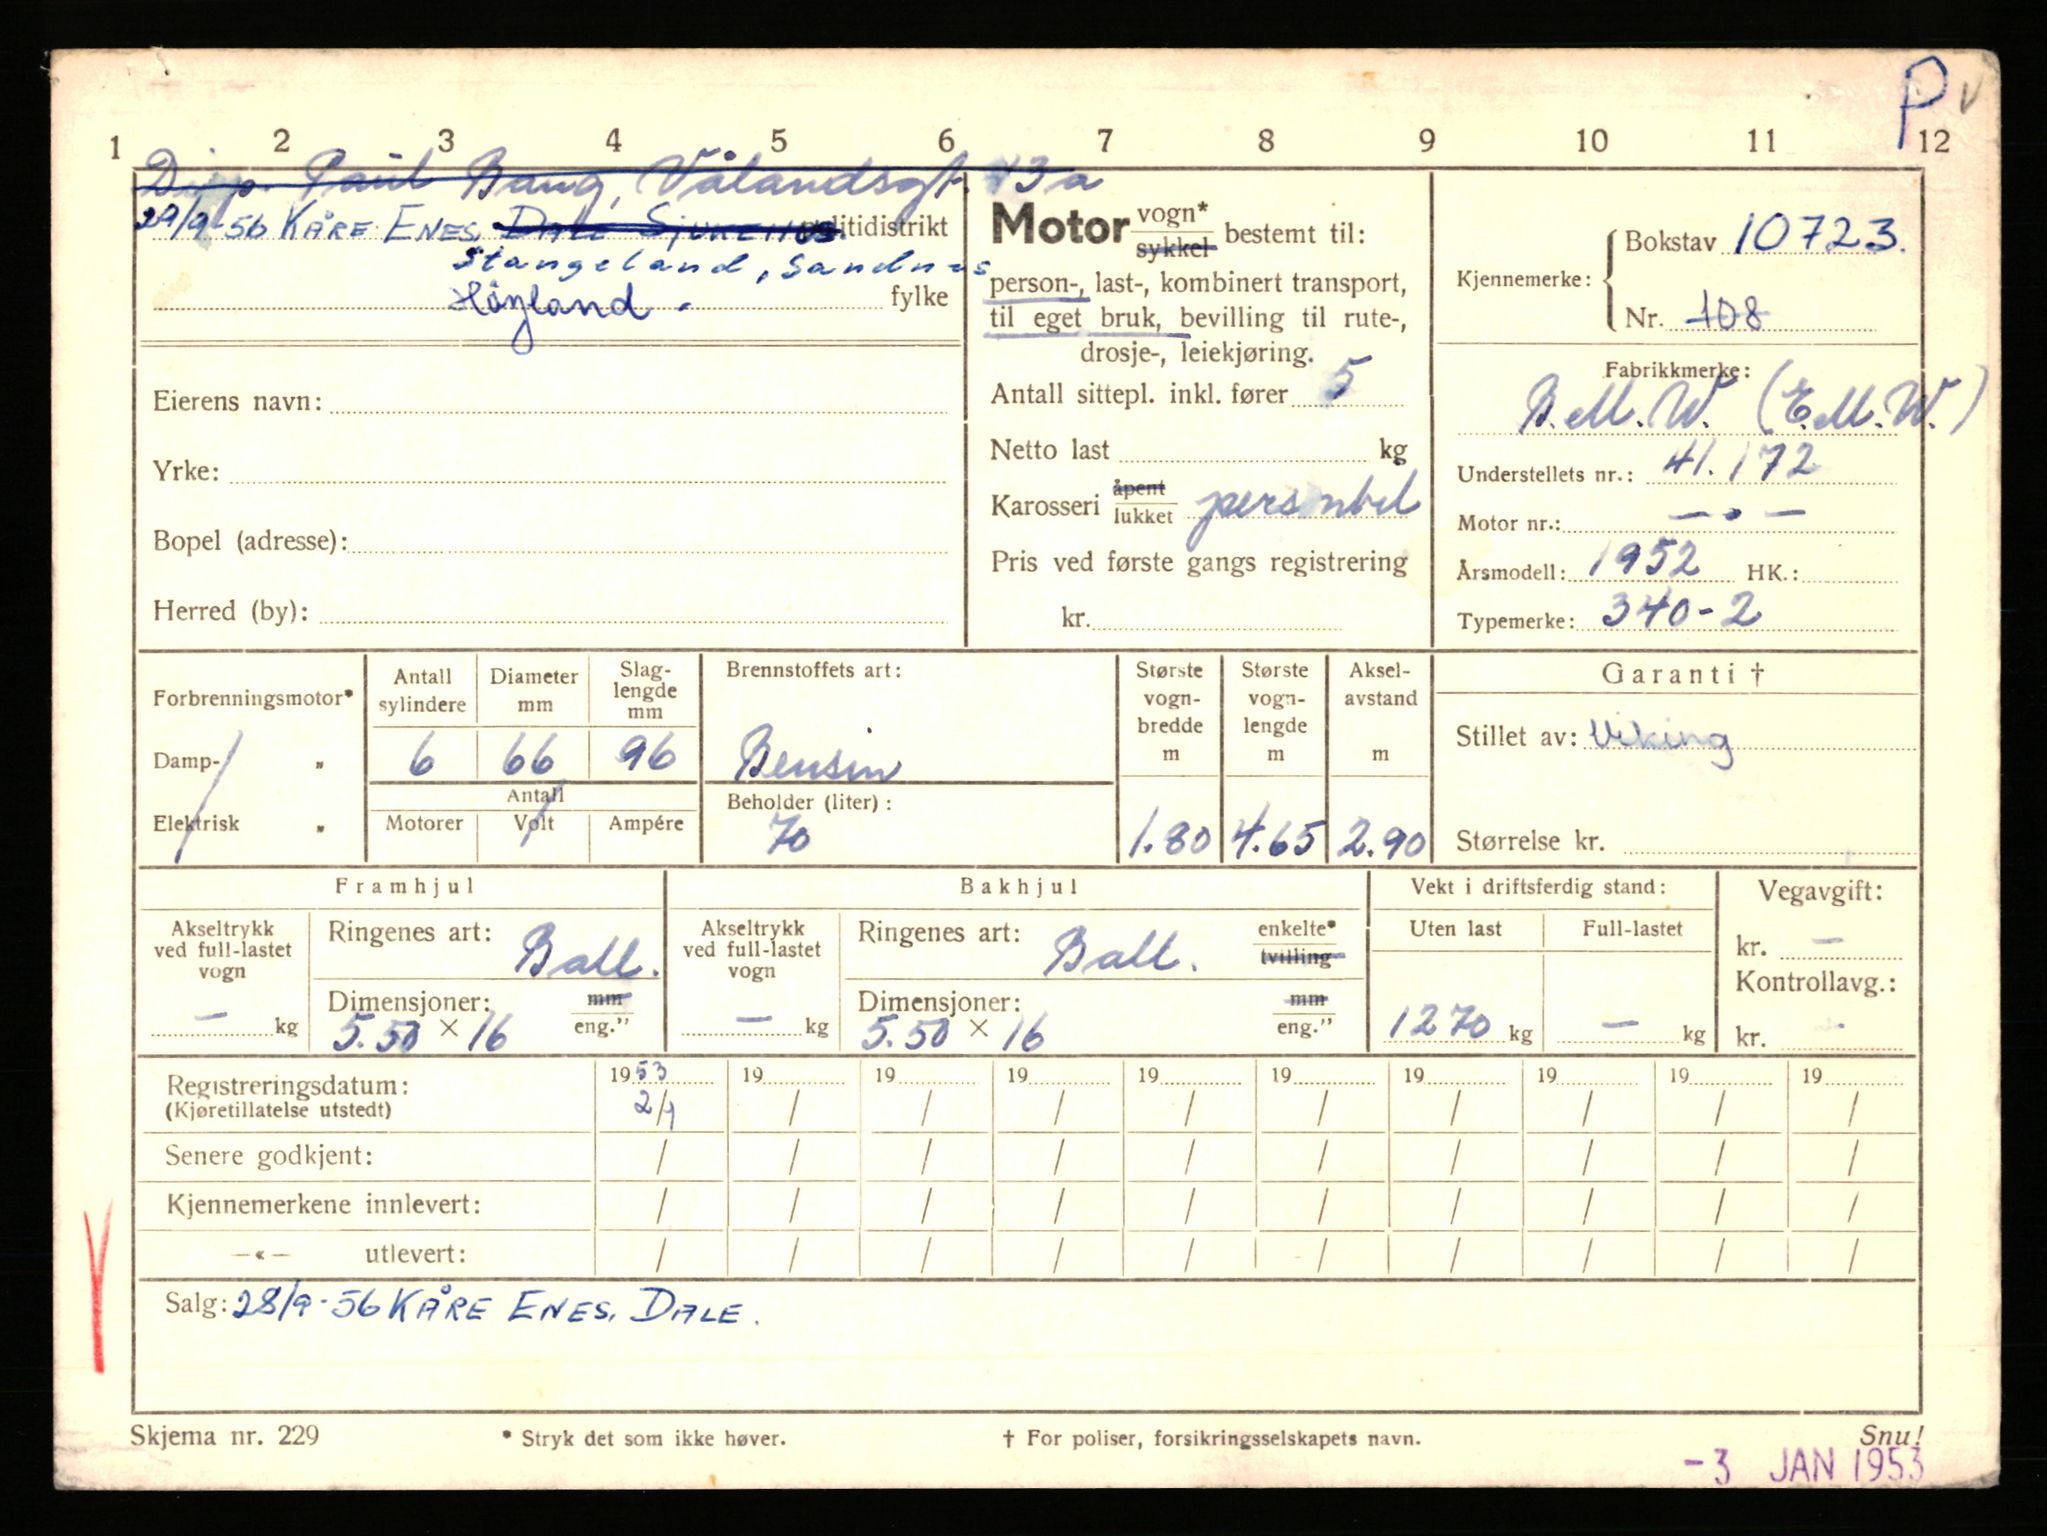 P v
1 2 3 4 5 6 7 8 9 10 11 12
Disp. Paul Bang, Vålandsgt. 43a
29/9-56 KÅRE ENES. DALE SJUKEHUS. politidistrikt
Stangeland, Sandnes
Höyland. fylke
Eierens navn:
Yrke:
Bopel (adresse):
Herred (by):
Motor vogn* sykkel bestemt til:
person-, last-, kombinert transport,
til eget bruk, bevilling til rute-,
drosje-, leiekjøring.
Antall sittepl. inkl. fører 5
Netto last kg
Karosseri åpent lukket personbil
Pris ved første gangs registrering
kr.
Kjennemerke: Bokstav 10723.
Nr. 108
Fabrikkmerke:
B.M.W. (E.M.W.)
Understellets nr.: 41.172
Motor nr.: — • —
Årsmodell: 1952 HK.:
Typemerke: 340-2
Forbrenningsmotor*
Damp- „
Elektrisk „
Antall sylindere 6
Diameter mm 66
Slaglengde mm 96
Antall
Motorer Volt Ampére
Brennstoffets art:
Bensin
Beholder (liter):
70
Største vognbredde m 1.80
Største vognlengde m 4.65
Akselavstand m 2.90
Garanti †
Stillet av: Viking
Størrelse kr.
Framhjul
Akseltrykk ved full-lastet vogn — kg
Ringenes art: Ball.
Dimensjoner: mm eng."
5.50 × 16
Bakhjul
Akseltrykk ved full-lastet vogn — kg
Ringenes art: Ball. enkelte* tvilling
Dimensjoner: mm eng."
5.50 × 16
Vekt i driftsferdig stand:
Uten last Full-lastet
1270 kg — kg
Vegavgift:
kr. —
Kontrollavg.:
kr. -
Registreringsdatum: 1953 19 19 19 19 19 19 19 19 19
(Kjøretillatelse utstedt) 2/1 / / / / / / / / /
Senere godkjent: / / / / / / / / / /
Kjennemerkene innlevert: / / / / / / / / / /
—«— utlevert: / / / / / / / / / /
Salg: 28/9-56 KÅRE ENES, DALE.
Skjema nr. 229 * Stryk det som ikke høver. † For poliser, forsikringsselskapets navn. Snu!
-3 JAN 1953